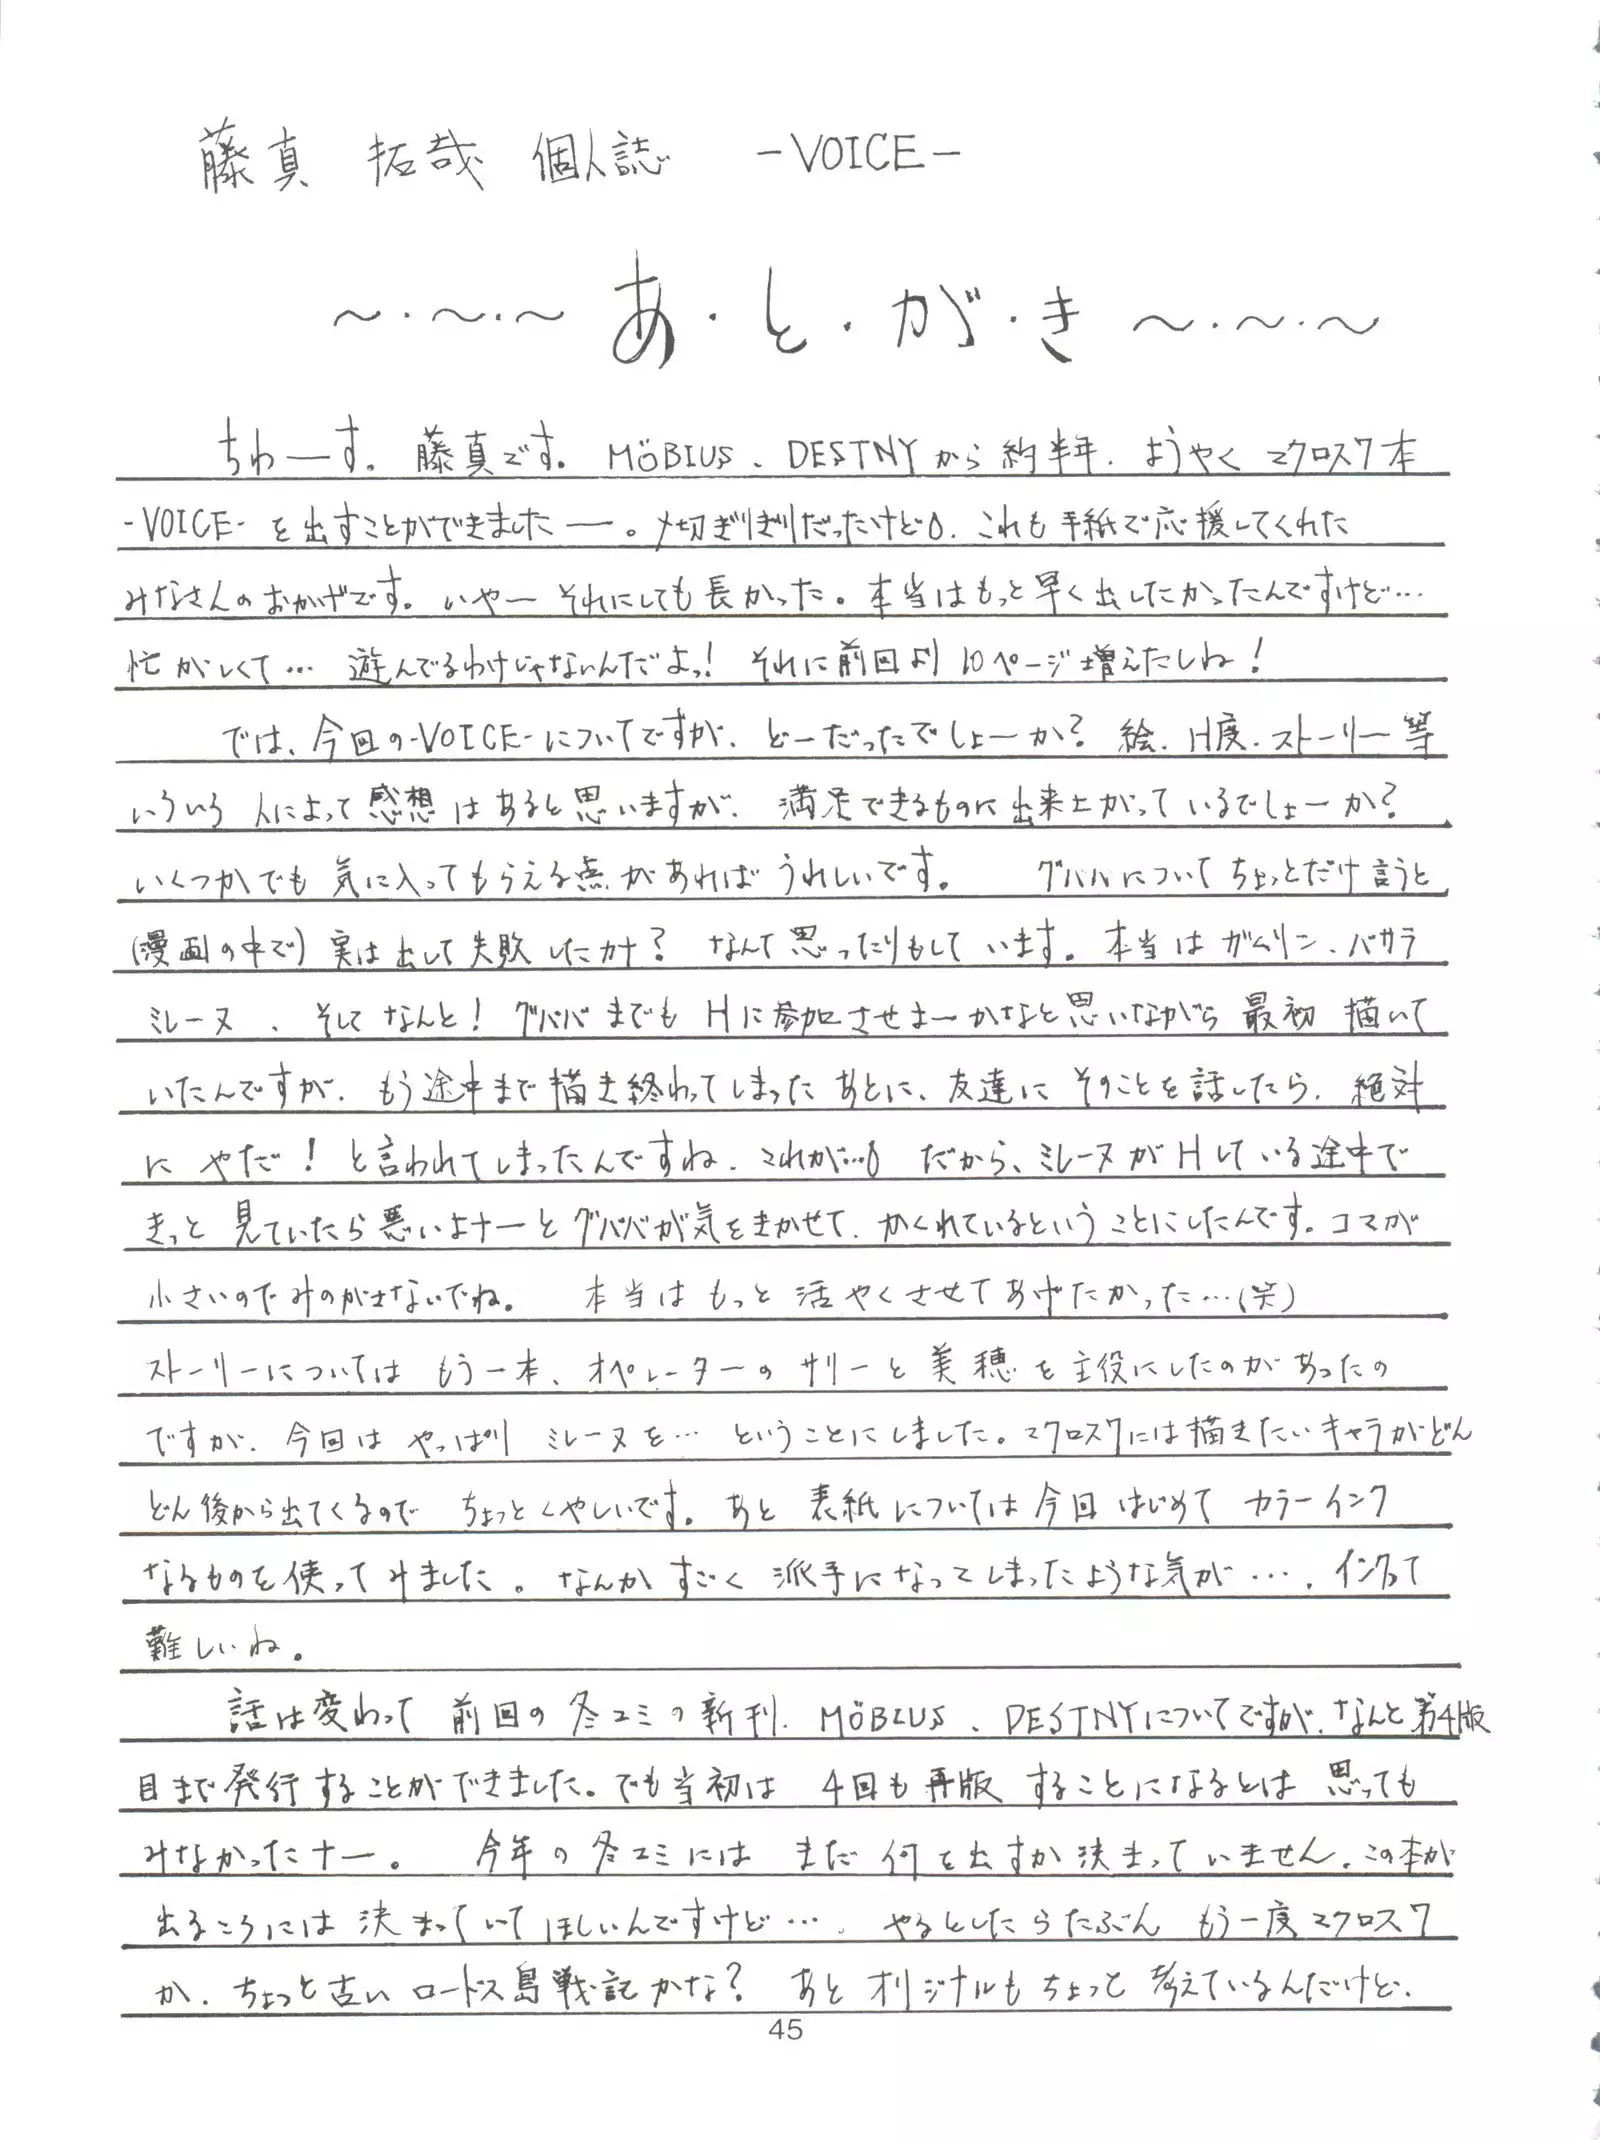 藤真 拓哉 個人誌 -VOICE-
～・～・～ あ・と・が・き ～・～・～
ちわーす。藤真です。MÖBIUS、DESTNYから約半年、ようやくマクロス7本
-VOICE-を出すことができましたー。〆切ぎりぎりだったけど、これも手紙で応援してくれた
みなさんのおかげです。いやーそれにしても長かった。本当はもっと早く出したかったんですけど…
忙がしくて… 遊んでるわけじゃないんだよっ！それに前回より10ページ増えたしね！
では、今回の-VOICE-についてですが、どーだったでしょーか？絵、H度、ストーリー等
いろいろ人によって感想はあると思いますが、満足できるものに出来上がっているでしょーか？
いくつかでも気に入ってもらえる点があればうれしいです。 グババについてちょっとだけ言うと
(漫画の中で)実は出して失敗したカナ？なんて思ったりもしています。本当はガムリン、バサラ
ミレーヌ、そしてなんと！グババまでもHに参加させまーかなと思いながら最初描いて
いたんですが、もう途中まで描き終わってしまったあとに、友達にそのことを話したら、絶対
にやだ！と言われてしまったんですね、これが… だから、ミレーヌがHしている途中で
きっと見ていたら悪いよナーとグババが気をきかせて、かくれているということにしたんです。コマが
小さいのでみのがさないでね。 本当はもっと活やくさせてあげたかった…(笑)
ストーリーについてはもう一本、オペレーターのサリーと美穂を主役にしたのがあったの
ですが、今回はやっぱりミレーヌを…ということにしました。マクロス7には描きたいキャラがどん
どん後から出てくるのでちょっとくやしいです。あと表紙については今回はじめてカラーインク
なるものを使ってみました。なんかすごく派手になってしまったような気が…。インクって
難しいね。
話は変わって前回の冬コミの新刊、MÖBIUS、DESTNYについてですが、なんと第4版
目まで発行することができました。でも当初は4回も再版することになるとは思っても
みなかったナー。 今年の冬コミにはまだ何を出すか決まっていません。この本が
出るころには決まっていてほしいんですけど…。やるとしたらたぶんもう一度マクロス7
か、ちょっと古いロードス島戦記かな？あとオリジナルもちょっと考えているんだけど、
45